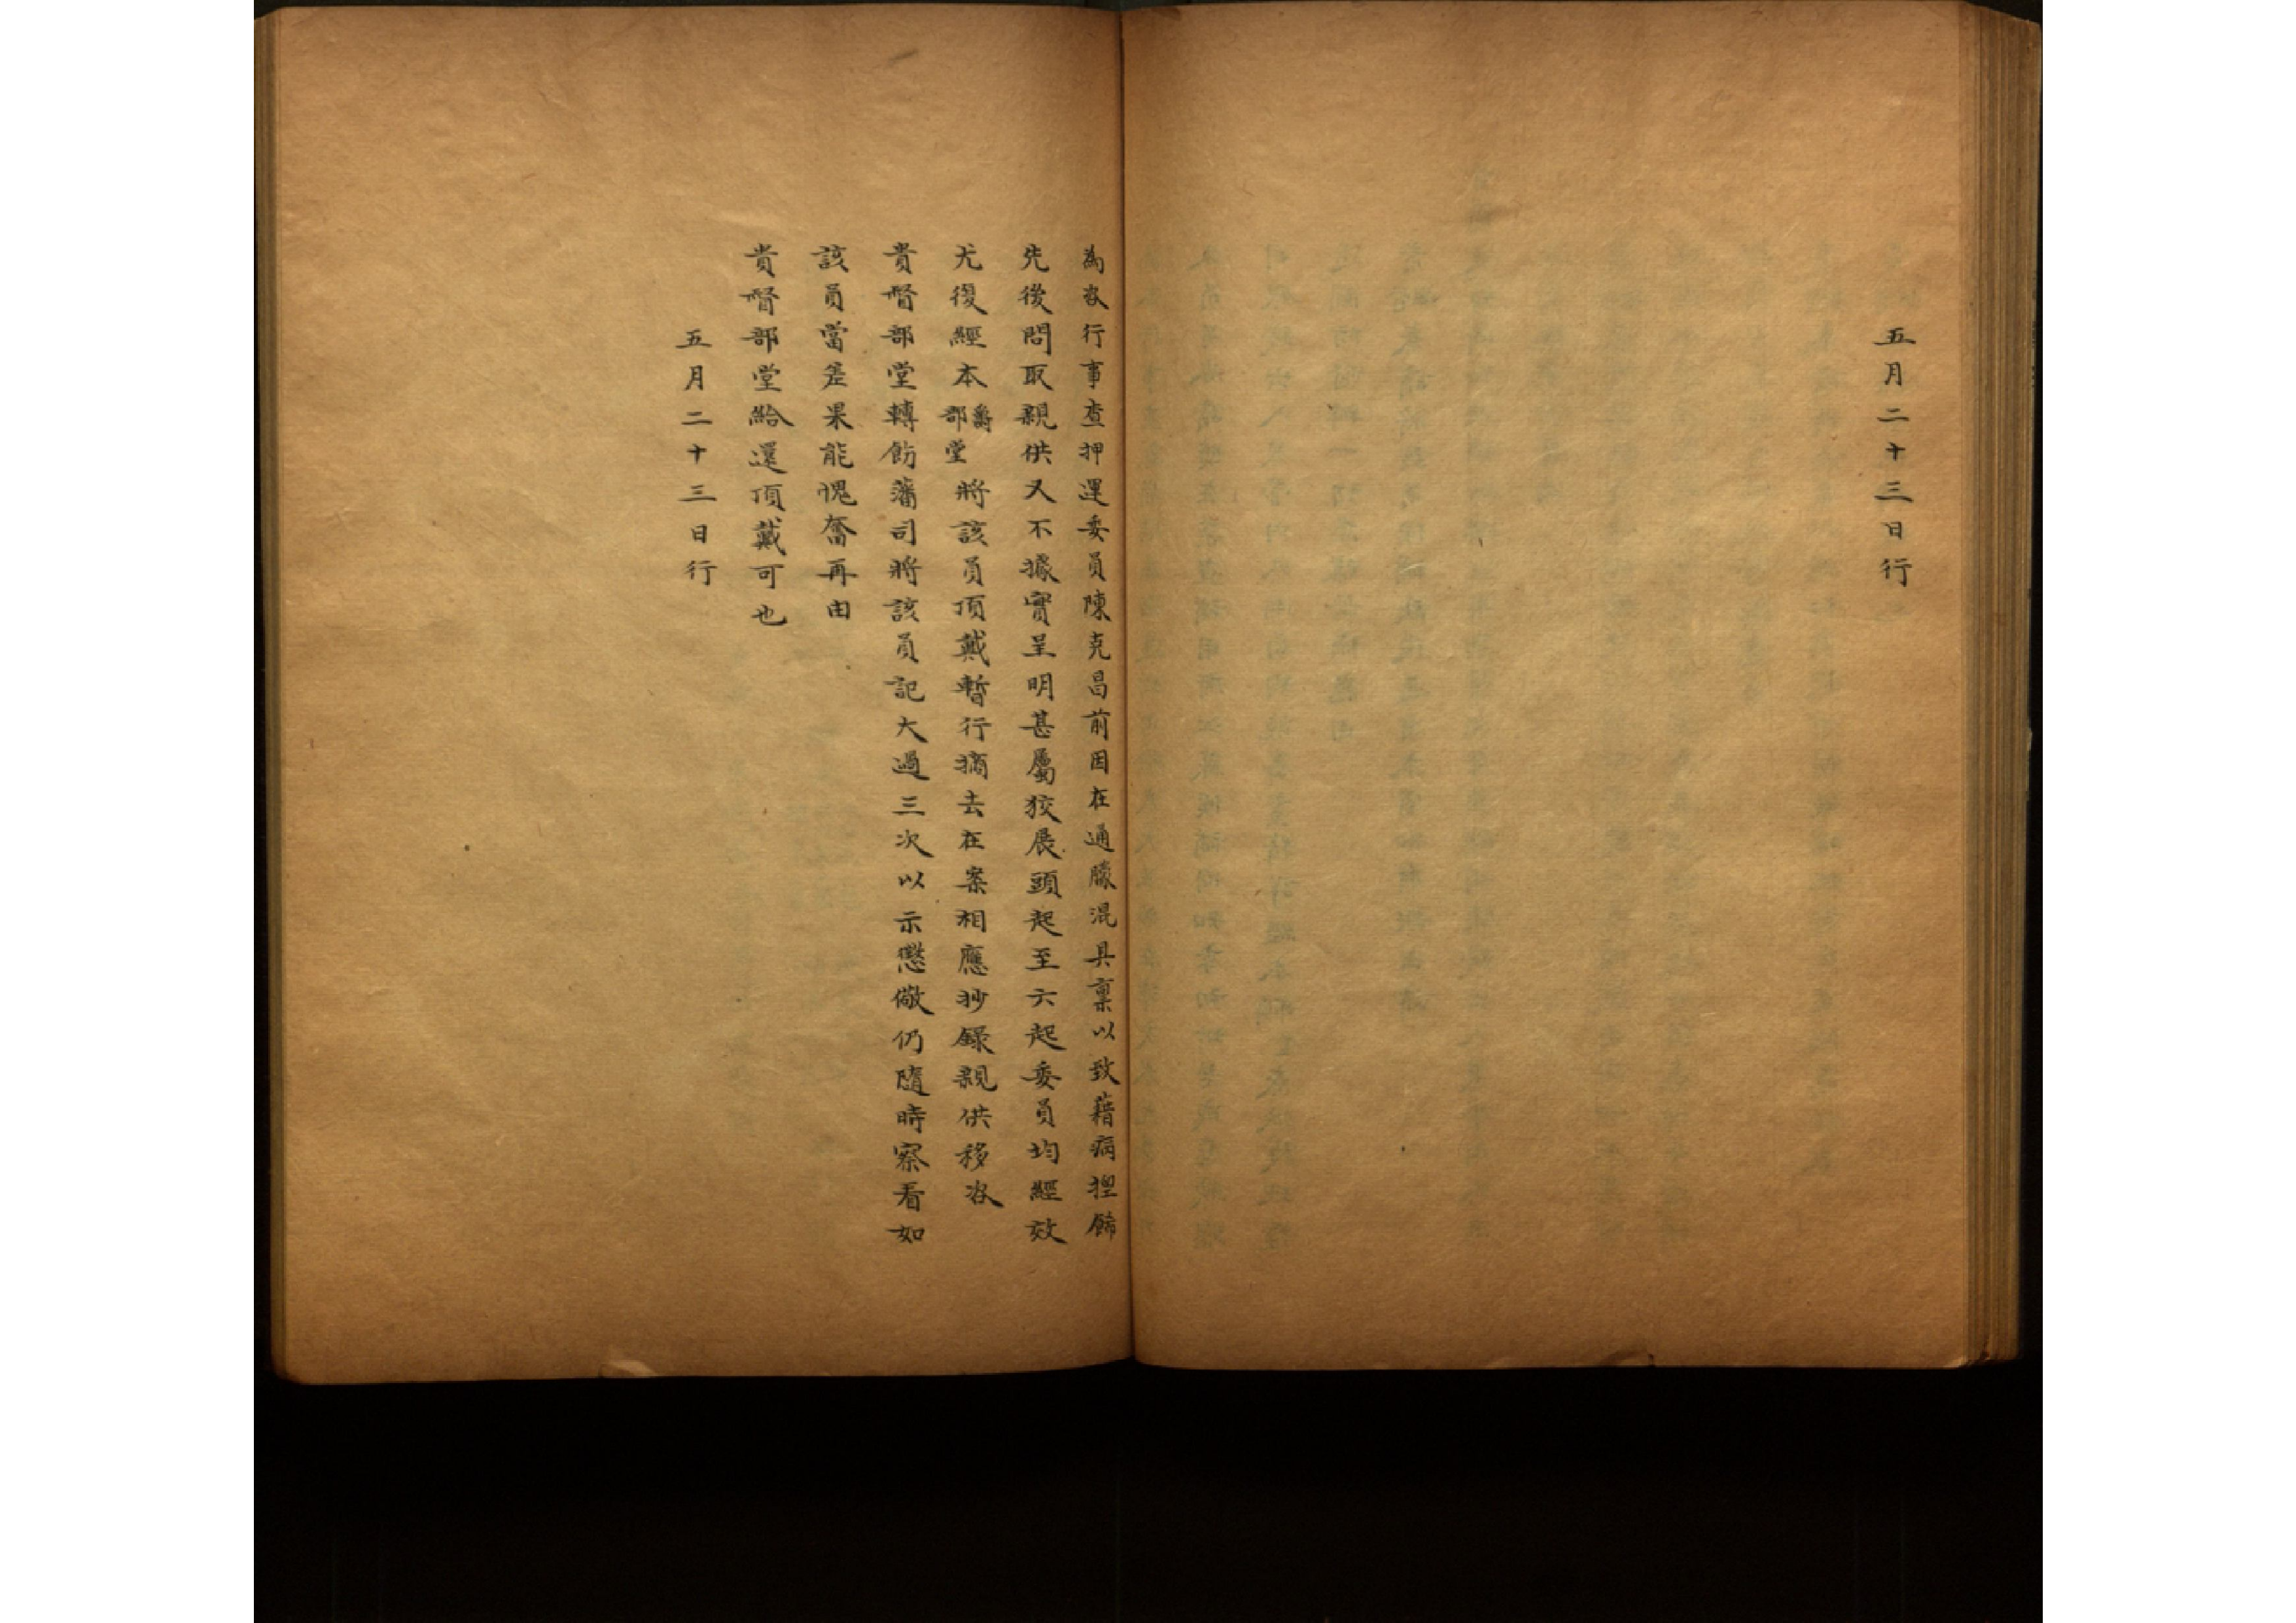 五月二十三日行
為咨行事查押運委員陳克昌前因在通朦混具稟以致藉病揑飾
先後問取親供又不據實呈明甚屬狡展頭起至六起委員均經效
尤復經本爵部堂將該員頂戴暫行摘去在案相應抄錄親供移咨
貴督部堂轉飭藩司將該員記大過三次以示懲儆仍隨時察看如
該員當差果能愧奮再由
貴督部堂給還頂戴可也
五月二十三日行